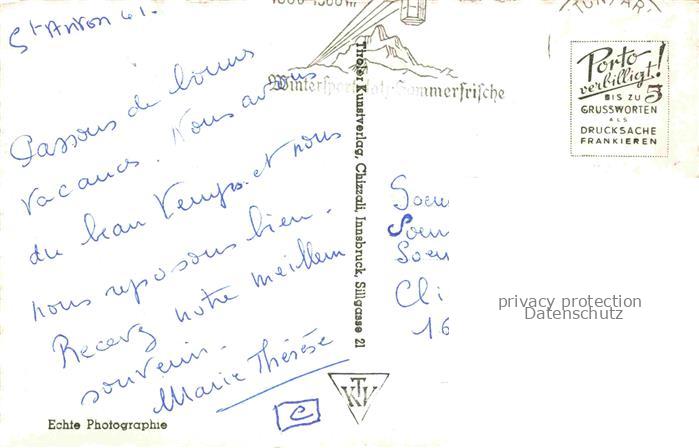 St Anton 61.
Passons de bonnes
vacances. Nous avons
du beau temps et nous
nous reposons bien.
Recevez notre meilleur
souvenir.
Marie Thérèse
Echte Photographie
Tiroler Kunstverlag, Chizzali, Innsbruck, Sillgasse 21
TKV
Wintersportplatz-Sommerfrische
Porto
verbilligt!
BIS ZU 5
GRUSSWORTEN
ALS
DRUCKSACHE
FRANKIEREN
Soeu
Soeu
Soeu
Cli
16
privacy protection
Datenschutz